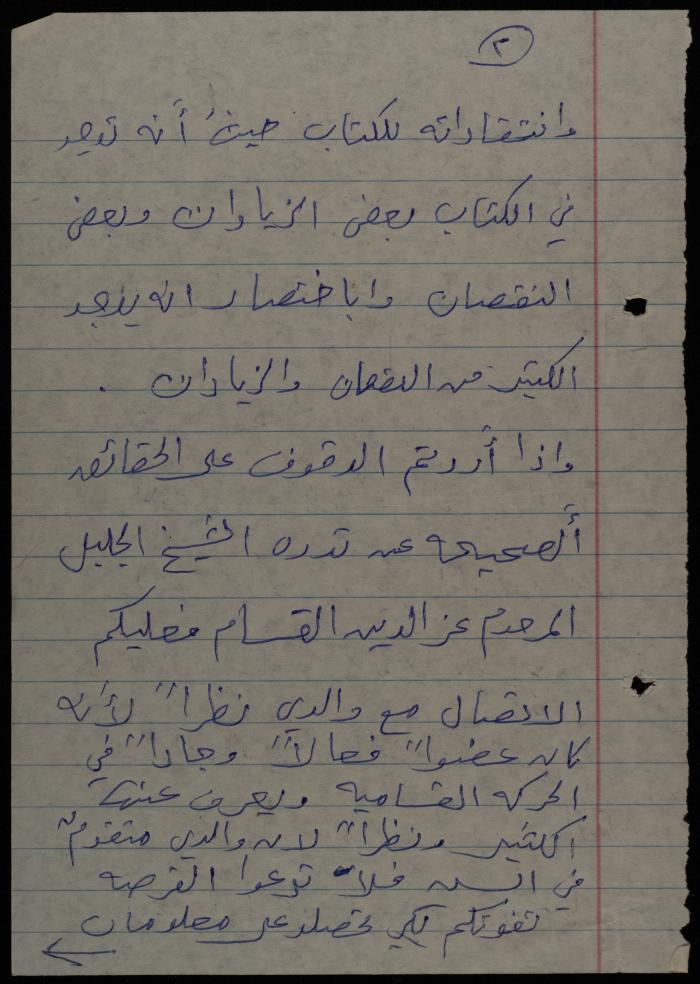 ٣
وانتقاداته للكتاب حيثُ أنه توجد
في الكتاب بعض الزيادات وبعض
النقصان واباختصار انه يوجد
الكثير من النقصان والزيادات .
واذا أردتم الوقوف على الحقائق
ألصحيحه عن ثورة الشيخ الجليل
المرحوم عز الدين القسام فعليكم
الاتصال مع والدي نظراً لأنه
كان عضواً فعالاً وجاداً في
الحركه القساميه ويعرف عنها
الكثير ونظراً لان والدي متقدمٌ
في السن فلا تدعوا الفرصه
تفوتكم لكي تحصلو على معلومات